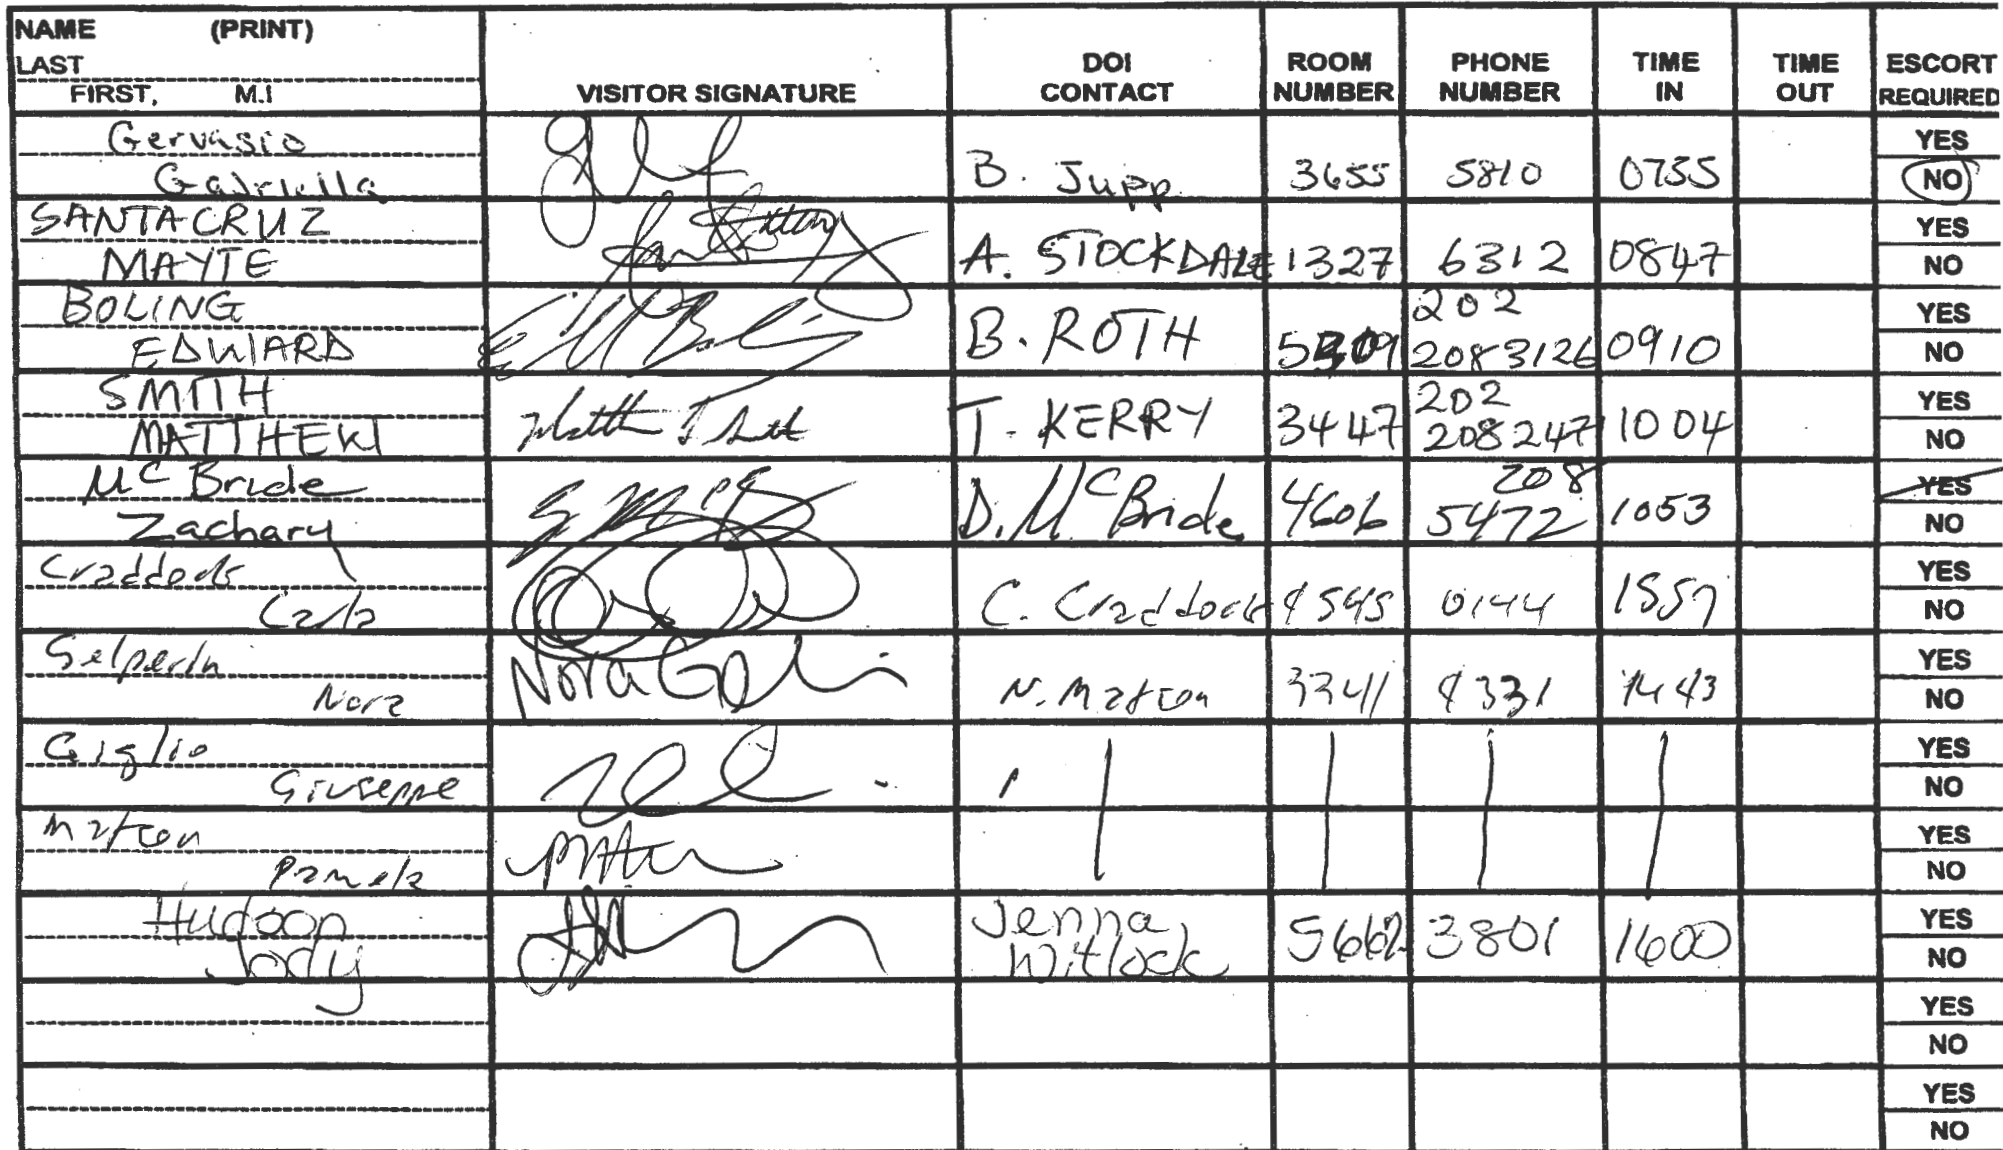 NAME (PRINT)
LAST
FIRST, M.I
VISITOR SIGNATURE
DOI CONTACT
ROOM NUMBER
PHONE NUMBER
TIME IN
TIME OUT
ESCORT REQUIRED
Gervasio
Gabriella B. Jupp 3655 5810 0755
YES
NO
SANTACRUZ
MAYTE A. STOCKDALE 1327 6312 0847
YES
NO
BOLING 202
EDWARD B. ROTH 2083126 0910
YES
NO
SMITH 202
MATTHEW T. KERRY 3447 208247 1004
YES
NO
McBride 208
Zachary D. McBride 4606 5472 1053
YES
NO
Craddock
Carla C. Craddock 4545 0144 1557
YES
NO
Selperin
Nora Nora N. Matson 3341 4331 1443
YES
NO
Giglio
Giuseppe
YES
NO
Matson
Pamela
YES
NO
Hudson Jenna
Jody Witlock 5662 3801 1600
YES
NO
YES
NO
YES
NO